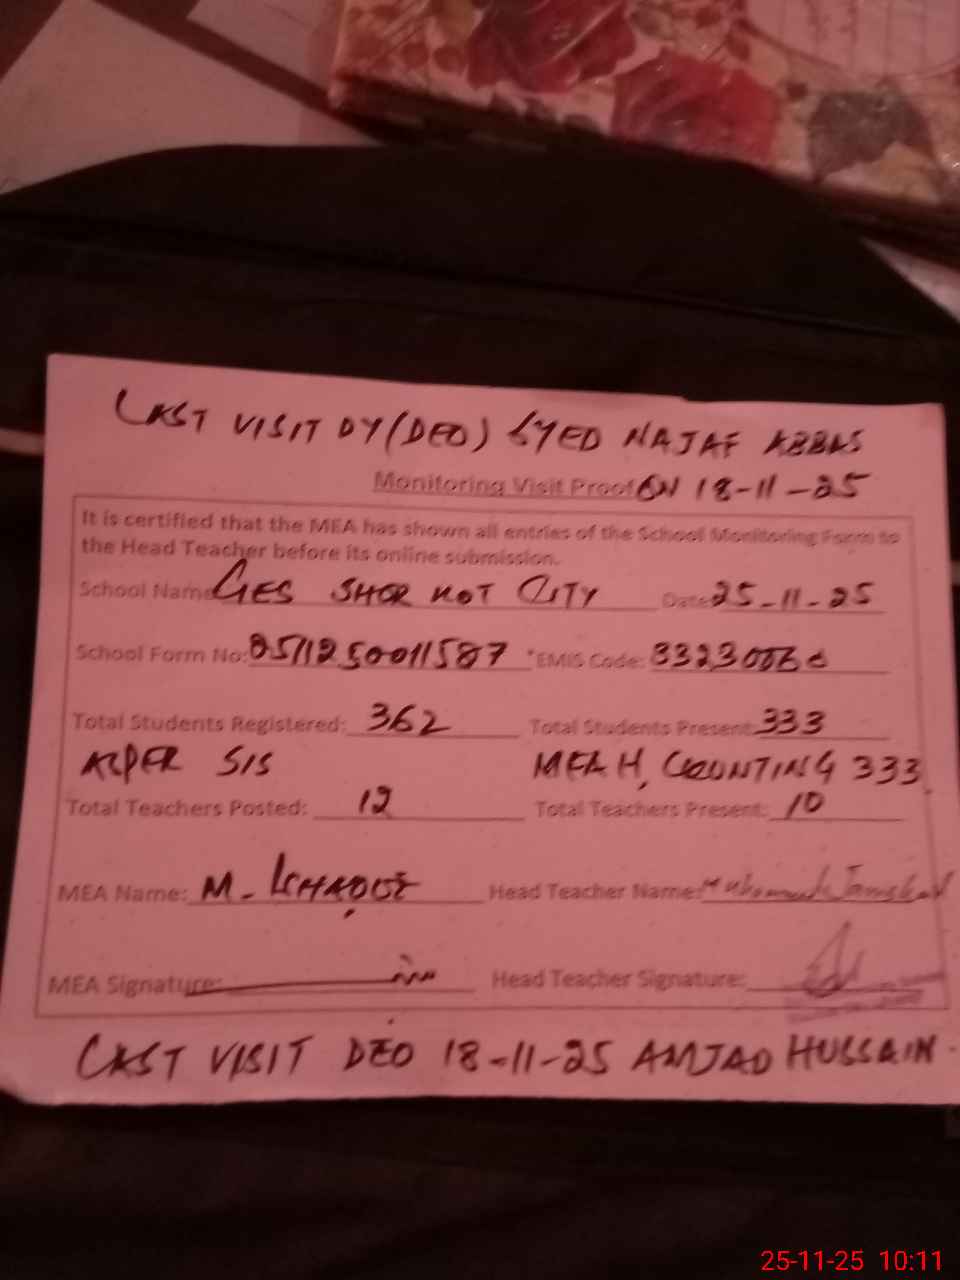 LAST VISIT DY(DEO) SYED NAJAF ABBAS
Monitoring Visit Proof ON 18-11-25
It is certified that the MEA has shown all entries of the School Monitoring Form to
the Head Teacher before its online submission.
School Name: GES SHOR KOT CITY Date: 25-11-25
School Form No: *EMIS Code:
Total Students Registered: 362 Total Students Present: 333
PER SIS MEA H, COUNTING 333
Total Teachers Posted: 12 Total Teachers Present: 10
MEA Name: M. Head Teacher Name:
MEA Signature: Head Teacher Signature:
LAST VISIT DEO 18-11-25 AMJAD HUSSAIN.
25-11-25 10:11